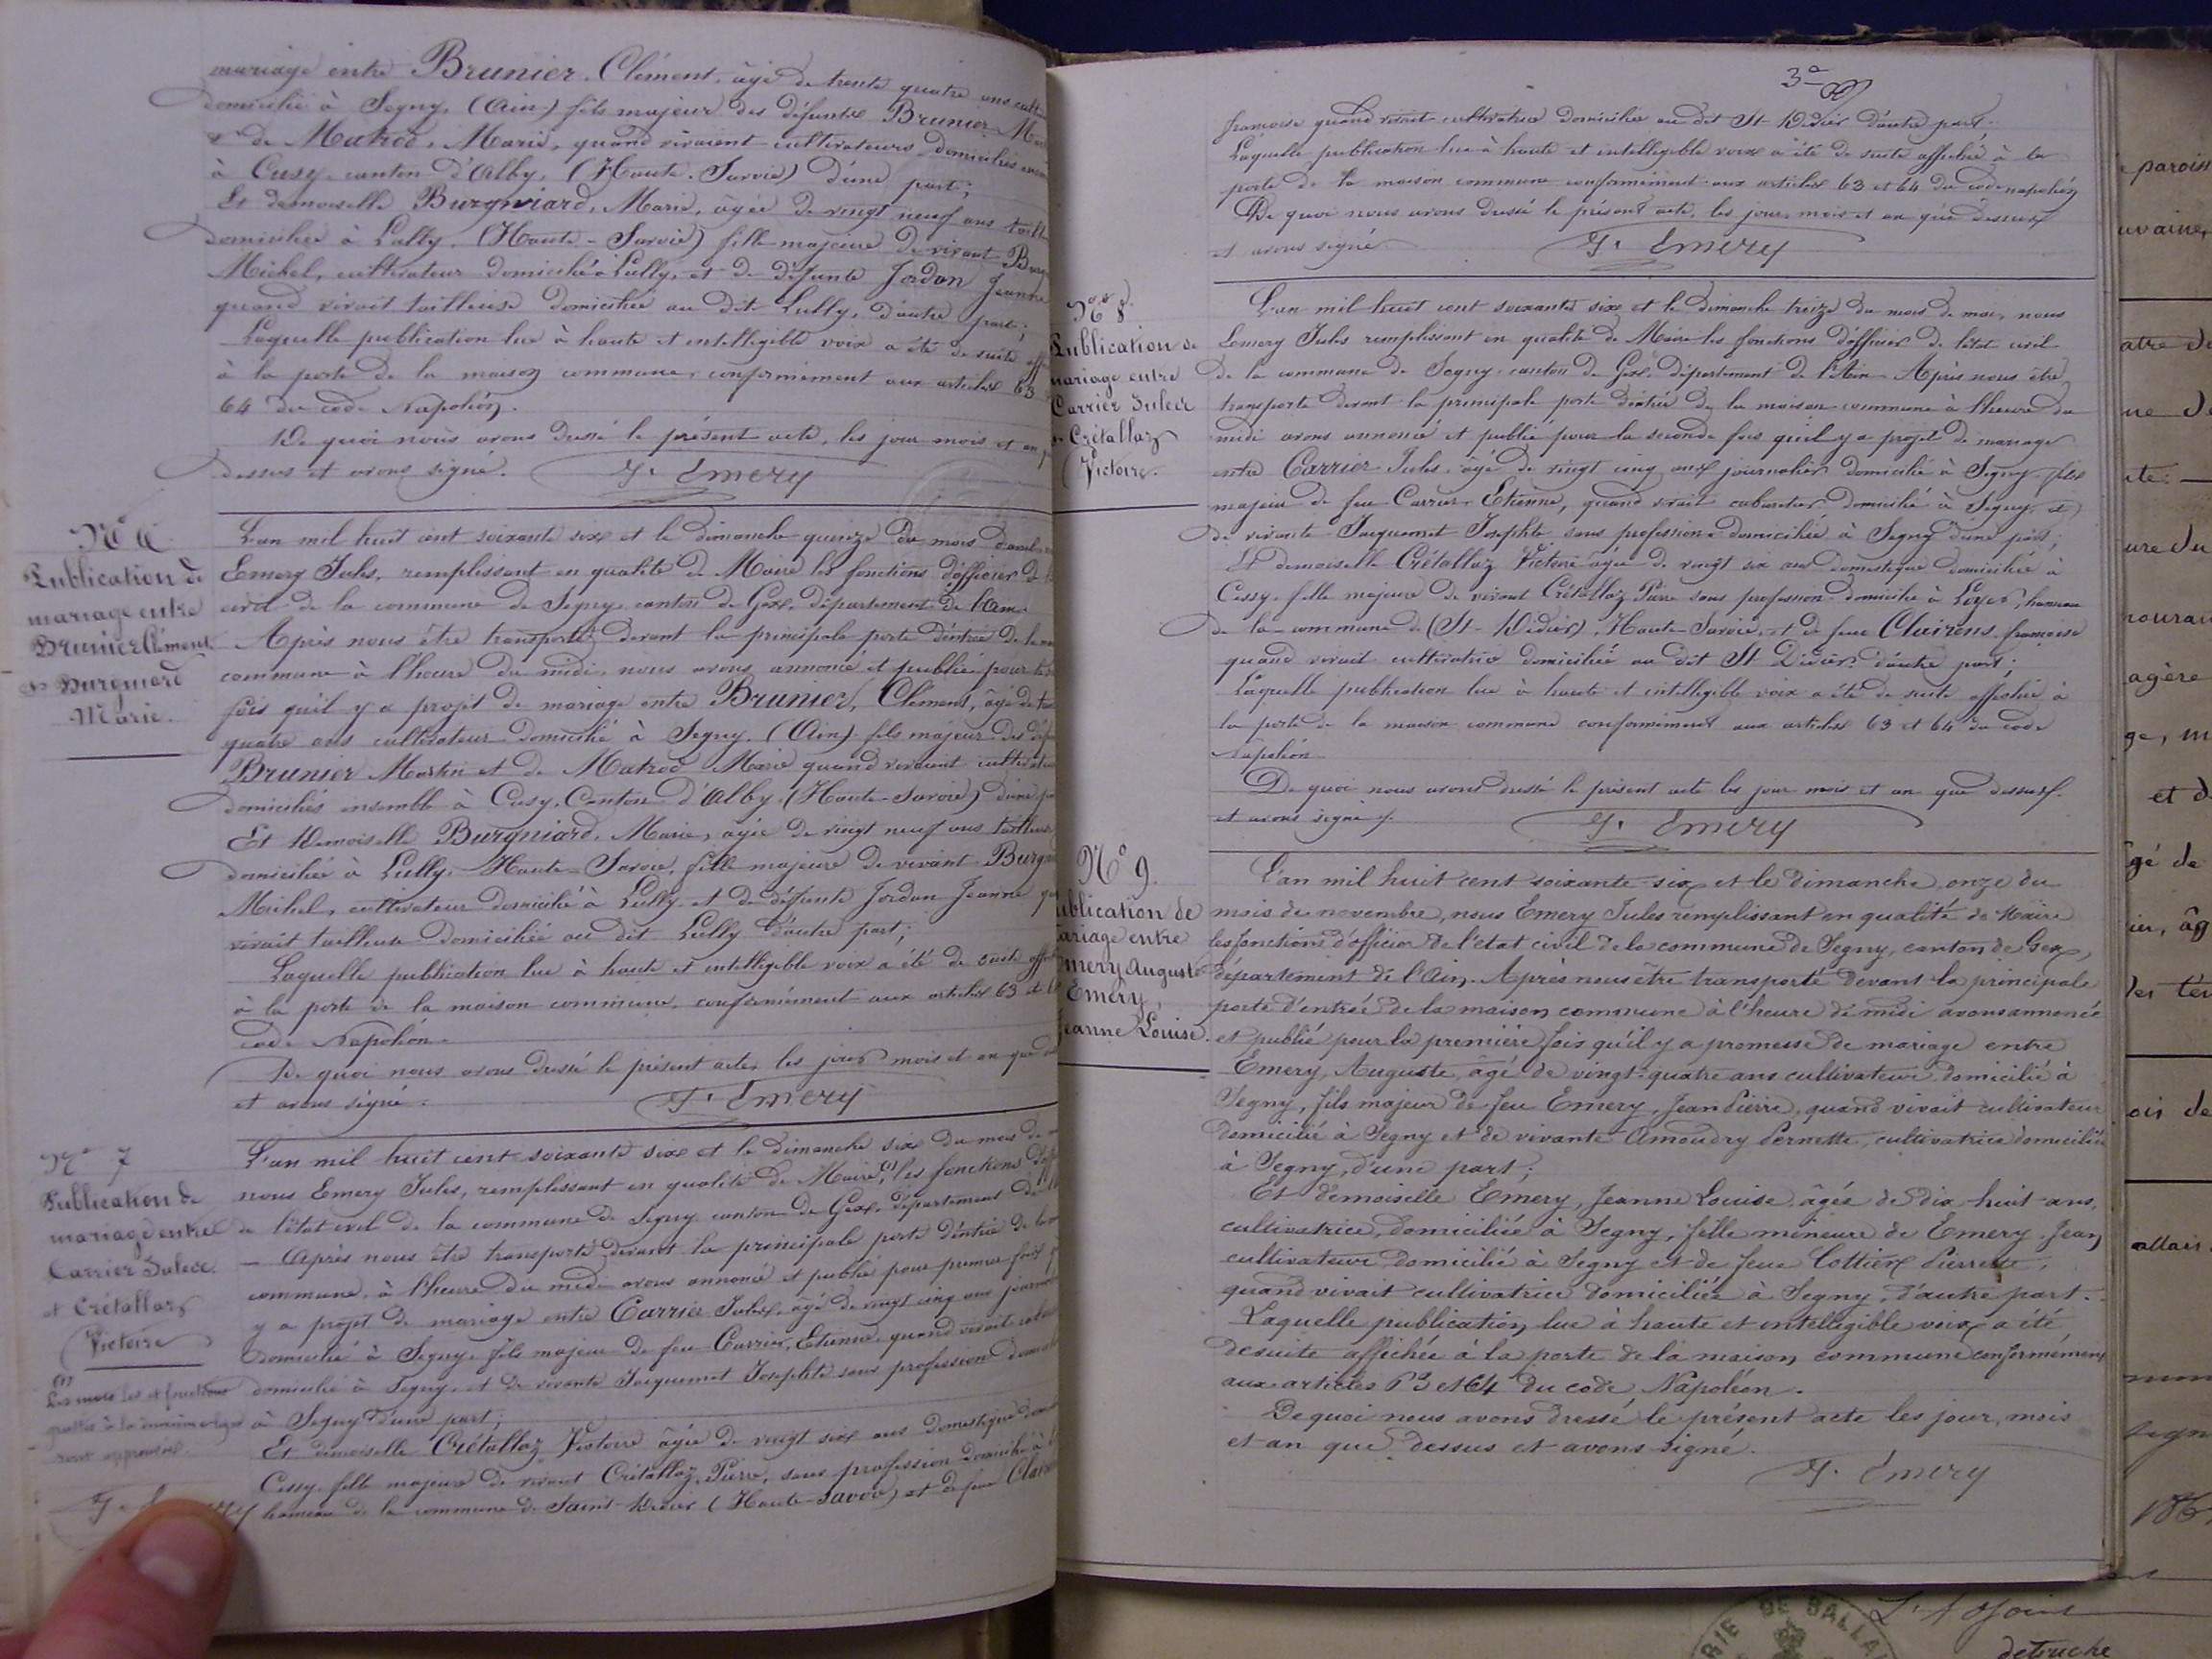 mariage entre Brunier Clément, âgé de trente quatre ans
domicilié à Segny, (Ain) fils majeur des défunts Brunier
& de Matrod, Marie, quand vivaient cultivateurs domiciliés
à Cusy canton d'Alby, (Haute-Savoie) d'une part;
Et demoiselle Burgniard, Marie, âgée de vingt neuf ans
domiciliée à Lully, (Haute-Savoie) fille majeure de vivant
Michel, cultivateur domicilié à Lully, et de défunte Jordan Jeanne
quand vivait tailleuse domiciliée au dit Lully, d'autre part;
Laquelle publication lue à haute et intelligible voix a été de suite
à la porte de la maison commune, conformément aux articles 63
64 du code Napoléon.
De quoi nous avons dressé le présent acte, les jour mois et an
dessus et avons signé. J. Emery
N° 6
Publication de
mariage entre
Brunier Clément
& Burgniard
Marie.
L'an mil huit cent soixante six et le dimanche quinze du mois d'avril
Emery Jules, remplissant en qualité de Maire les fonctions d'officier de
civil de la commune de Segny canton de Gex, département de l'Ain
Après nous être transporté devant la principale porte d'entrée de la
commune à l'heure du midi, nous avons annoncé et publié pour
fois qu'il y a projet de mariage entre Brunier, Clément, âgé de
quatre ans cultivateur domicilié à Segny, (Ain) fils majeur des
Brunier Martin et de Matrod Marie quand vivaient
domiciliés ensemble à Cusy, Canton d'Alby (Haute-Savoie) d'une
Et Demoiselle Burgniard, Marie, âgée de vingt neuf ans
domiciliée à Lully, Haute-Savoie, fille majeure de vivant
Michel, cultivateur domicilié à Lully et de défunte Jordan Jeanne
vivait tailleuse domiciliée au dit Lully d'autre part;
Laquelle publication lue à haute et intelligible voix a été de suite
à la porte de la maison commune, conformément aux articles 63 et
code Napoléon.
De quoi nous avons dressé le présent acte, les jour mois et an que
et avons signé. J. Emery
N° 7
Publication de
mariage entre
Carrier Jules
et Crétallaz
Victoire
L'an mil huit cent soixante six et le dimanche six du mois de
nous Emery Jules, remplissant en qualité de Maire, (1) les fonctions
de l'état civil de la commune de Segny canton de Gex département de
Après nous être transporté devant la principale porte d'entrée de la
commune, à l'heure du midi avons annoncé et publié pour premier fois
y a projet de mariage entre Carrier Jules, âgé de vingt cinq ans
domicilié à Segny, fils majeur de feu Carrier, Etienne, quand vivait
domicilié à Segny, et de vivante Jacquemet Josephte sans profession
à Segny d'une part;
Et demoiselle Crétallaz Victoire âgée de vingt six ans domestique
Cessy, fille majeure de vivant Crétallaz, Pierre, sans profession domicilié à
hameau de la commune de Saint-Didier (Haute-Savoie) et de feue
(1)
3e
françoise quand vivait cultivatrice domiciliée au dit St Didier d'autre part.
Laquelle publication lue à haute et intelligible voix a été de suite affichée à la
porte de la maison commune conformément aux articles 63 et 64 du code napoléon
De quoi nous avons dressé le présent acte, les jour, mois et an que dessus
et avons signé J. Emery
N° 8.
Publication de
mariage entre
Carrier Jules
& Crétallaz
Victoire.
L'an mil huit cent soixante six et le dimanche treize du mois de mai, nous
Emery Jules remplissant en qualité de Maire les fonctions d'officier de l'état civil
de la commune de Segny, canton de Gex, département de l'Ain. Après nous être
transporté devant la principale porte d'entrée de la maison commune à l'heure du
midi avons annoncé et publié pour la seconde fois qu'il y a projet de mariage
entre Carrier Jules, âgé de vingt cinq ans journalier domicilié à Segny fils
majeur de feu Carrier Etienne, quand vivait cabaretier domicilié à Segny, et
de vivante Jacquemet Josephte sans profession domiciliée à Segny d'une part;
Et demoiselle Crétallaz Victoire âgée de vingt six ans domestique domiciliée à
Cessy, fille majeure de vivant Crétallaz Pierre sans profession domicilié à Loyer, hameau
de la commune de (St-Didier), Haute-Savoie, et de feue Clairens françoise
quand vivait cultivatrice domiciliée au dit St Didier d'autre part;
Laquelle publication lue à haute et intelligible voix a été de suite affichée à
la porte de la maison commune conformément aux articles 63 et 64 du code
Napoléon
De quoi nous avons dressé le présent acte les jour mois et an que dessus
et avons signé J. Emery
N° 9.
Publication de
mariage entre
Emery Auguste
Emery,
Jeanne Louise.
L'an mil huit cent soixante-six et le dimanche onze du
mois de novembre, nous Emery Jules remplissant en qualité de Maire
les fonctions d'officier de l'état civil de la commune de Segny, canton de Gex,
département de l'Ain. Après nous être transporté devant la principale
porte d'entrée de la maison commune à l'heure de midi avons annoncé
et publié pour la première fois qu'il y a promesse de mariage entre
Emery, Auguste, âgé de vingt-quatre ans cultivateur domicilié à
Segny, fils majeur de feu Emery, Jean Pierre, quand vivait cultivateur
domicilié à Segny et de vivante Amoudry Pernette, cultivatrice domiciliée
à Segny, d'une part;
Et demoiselle Emery, Jeanne Louise, âgée de dix-huit ans,
cultivatrice, domiciliée à Segny, fille mineure de Emery Jean
cultivateur domicilié à Segny et de feue Cottier Pierrette,
quand vivait cultivatrice domiciliée à Segny, d'autre part.
Laquelle publication lue à haute et intelligible voix a été
de suite affichée à la porte de la maison commune conformément
aux articles 63 et 64 du code Napoléon.
De quoi nous avons dressé le présent acte les jour, mois
et an que dessus et avons signé.
J. Emery